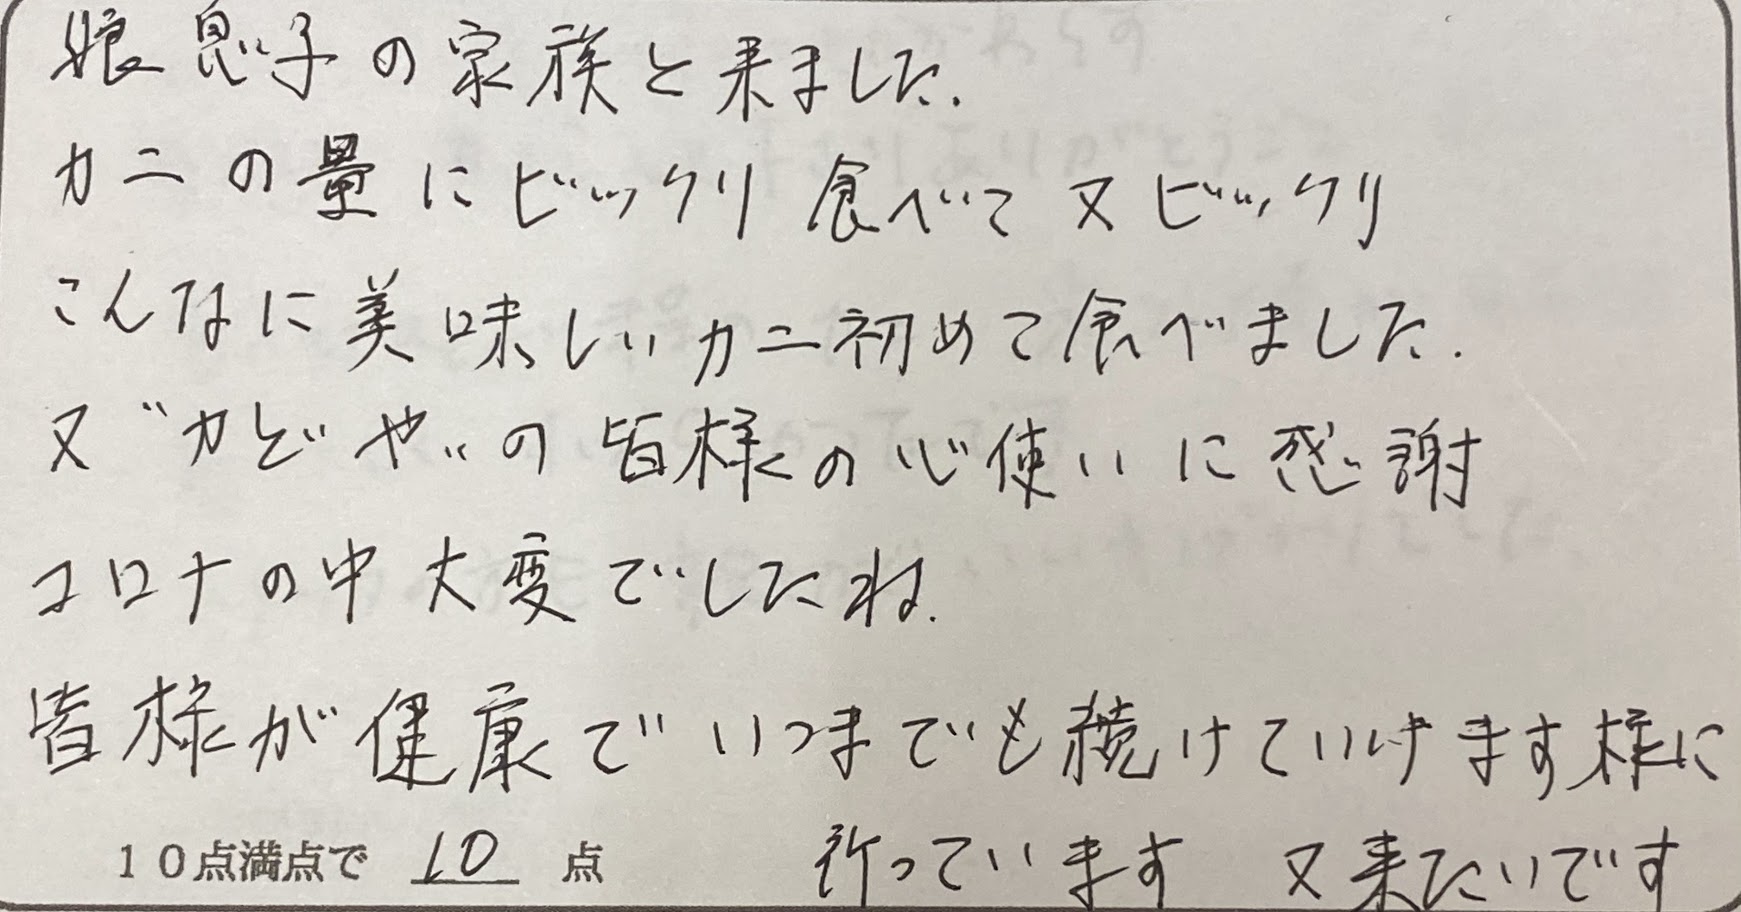 娘息子の家族と来ました.
カニの量にビックリ 食べて又ビックリ
こんなに美味しいカニ初めて食べました.
又"かどや"の皆様の心使いに感謝
コロナの中大変でしたね.
皆様が健康でいつまでも続けていけます様に
祈っています 又来たいです
10点満点で 10 点